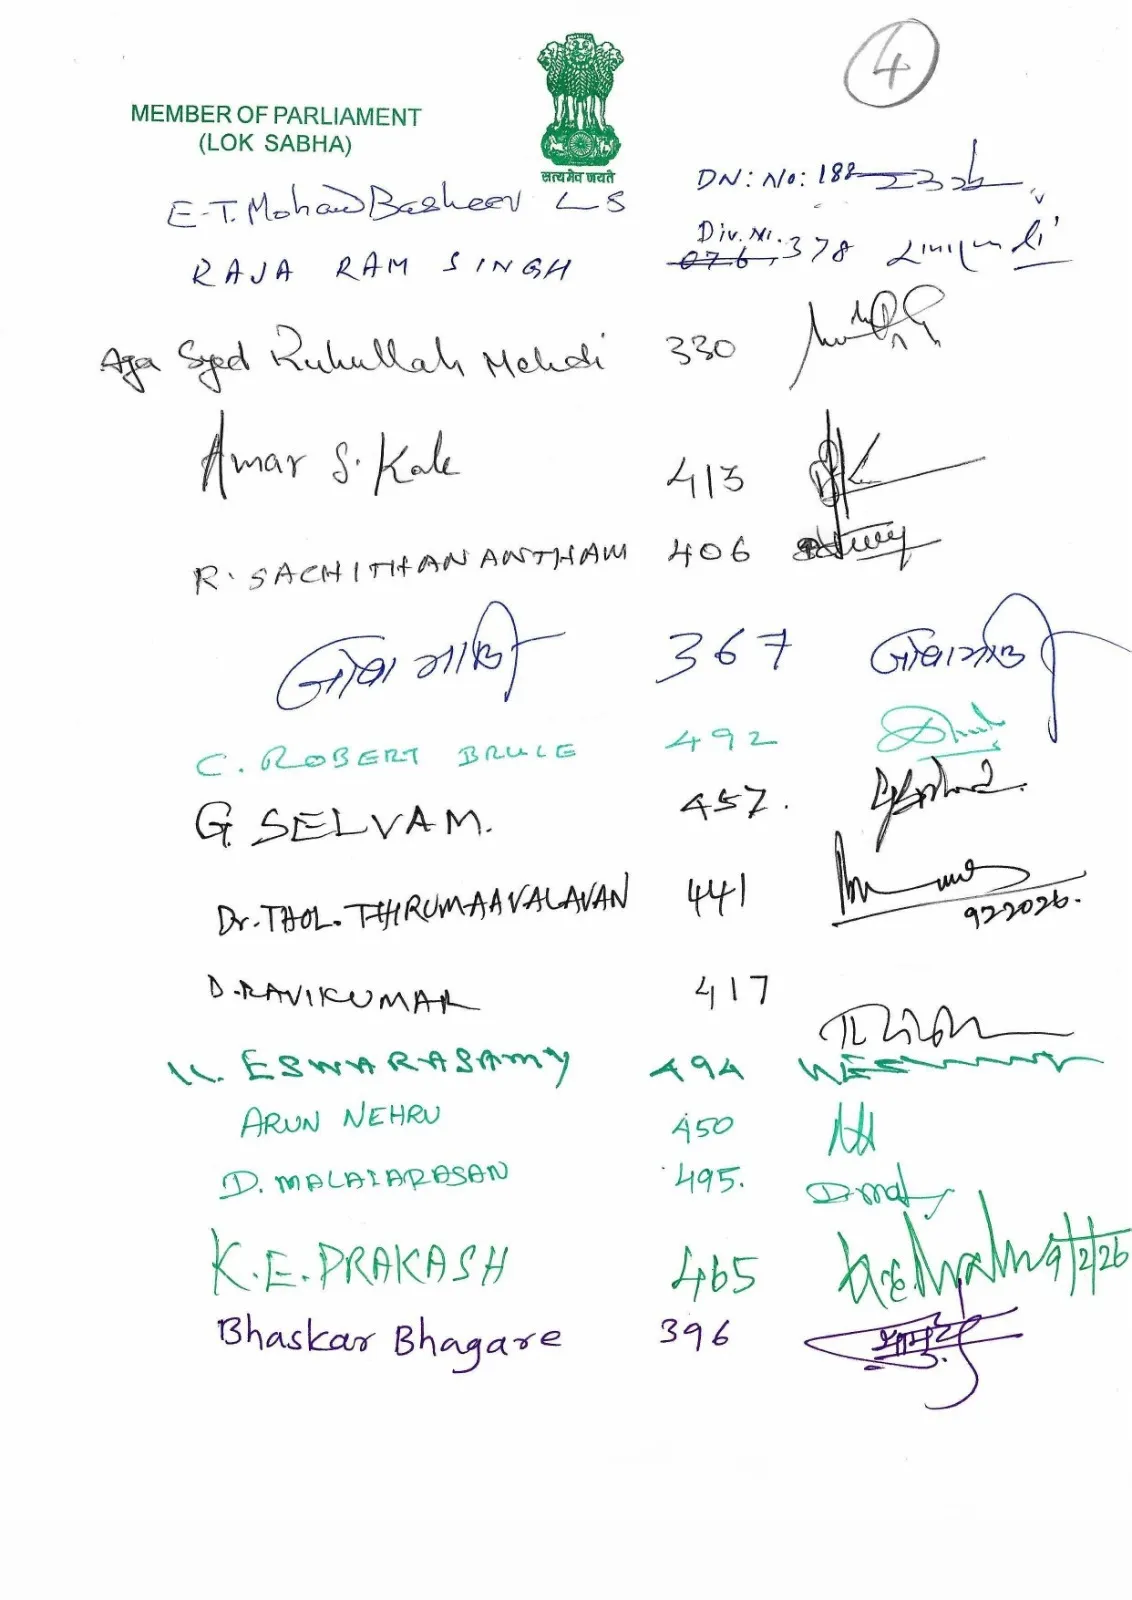 4
MEMBER OF PARLIAMENT
(LOK SABHA)
सत्यमेव जयते
E.T. Mohamed Basheer LS DN: No: 188
RAJA RAM SINGH Div. No. 076, 378
Aga Syed Ruhullah Mehdi 330
Amar S. Kale 413
R. SACHITHANANANTHAM 406
367
C. ROBERT BRUCE 492
G. SELVAM. 457.
Dr. THOL. THIRUMAAVALAVAN 441
922026.
D. RAVIKUMAR 417
K. ESWARASAMY 494
ARUN NEHRU 450
D. MALAIARASAN 495.
K.E. PRAKASH 465 9/2/26
Bhaskar Bhagare 396